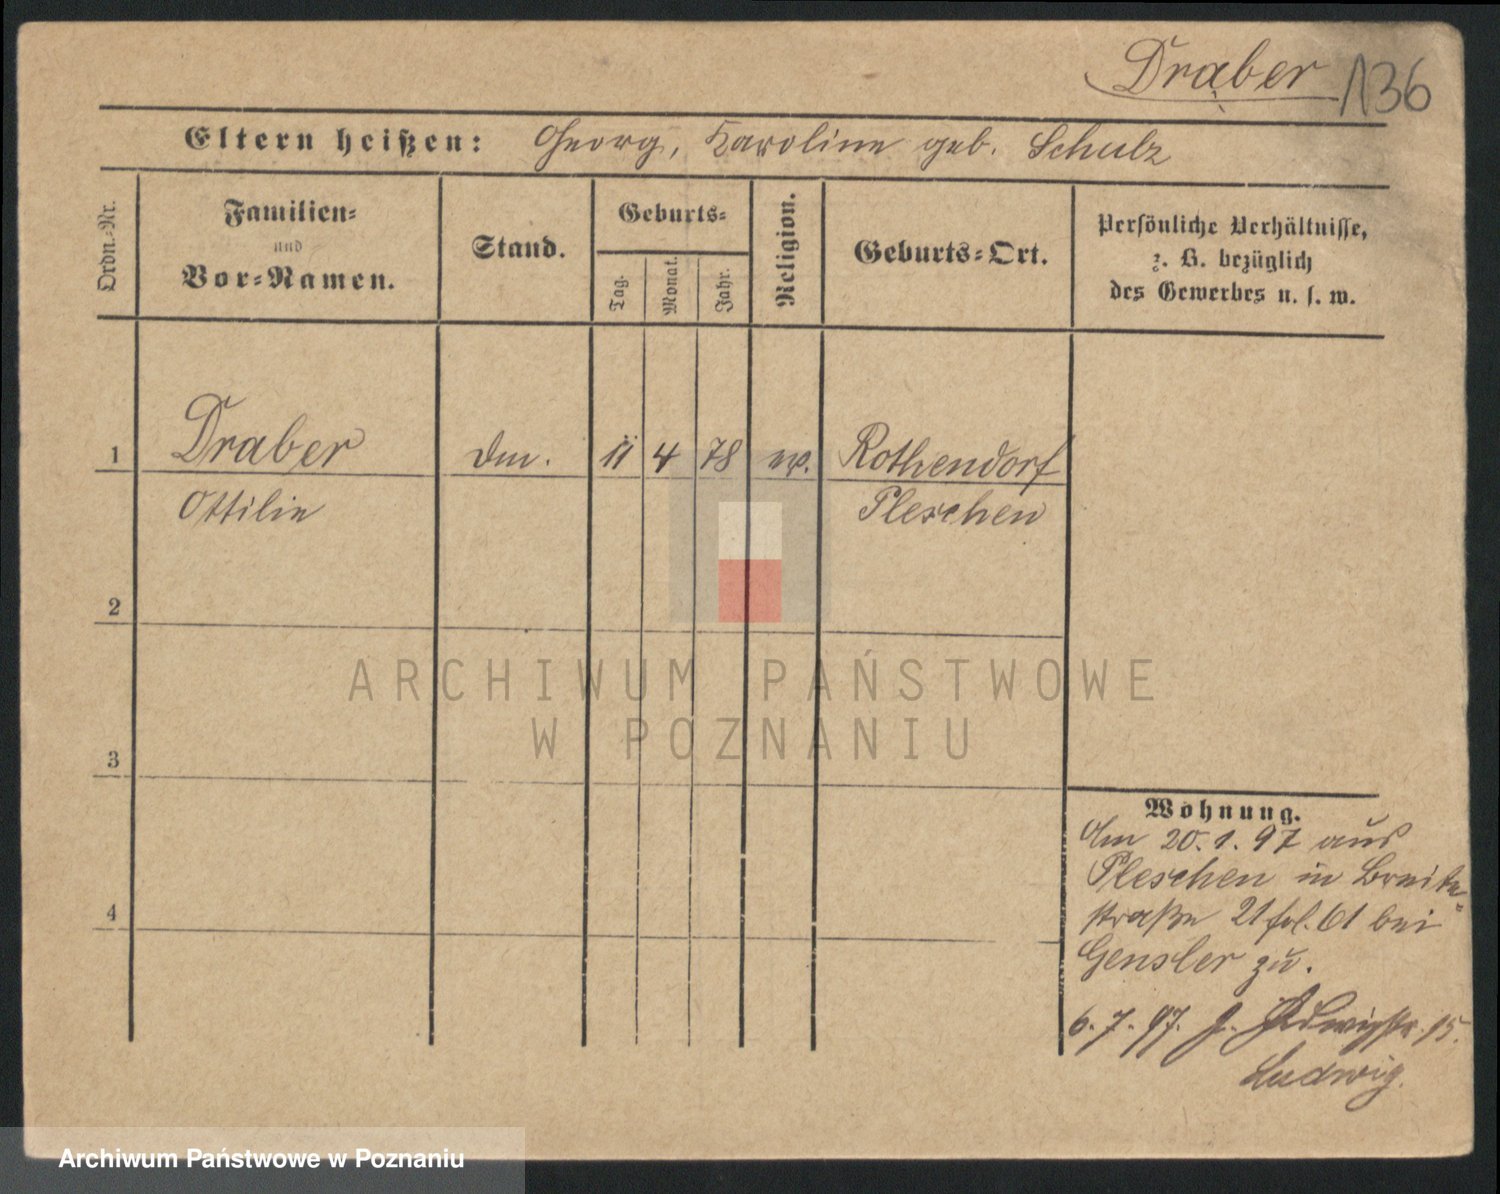 Draber 136
Eltern heißen: Georg, Karoline geb. Schulz
Ordn.-Nr.
Familien-
und
Vor-Namen.
Stand.
Geburts-
Tag.
Monat.
Jahr.
Religion.
Geburts-Ort.
Persönliche Verhältnisse,
z. B. bezüglich
des Gewerbes u. s. w.
1 Draber 11 4 78 Rothendorf
Ottilie Pleschen
2
3
4
Wohnung.
Am 20.1.97 aus
Pleschen in Breite-
straße 21 fol. 61 bei
Gensler zu.
6.7.97.
Ludwig.
ARCHIWUM PAŃSTWOWE
W POZNANIU
Archiwum Państwowe w Poznaniu